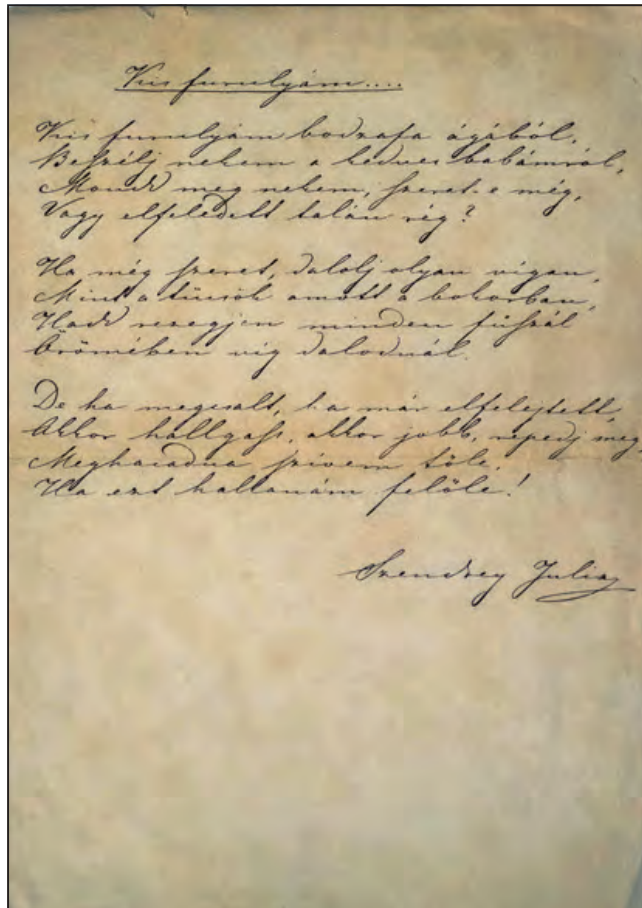 Kis furulyám....
Kis furulyám bodzafa ágából,
Beszélj nekem a kedves babámról,
Mondd meg nekem, szeret-e még,
Vagy elfeledett talán rég?
Ha még szeret, dalolj olyan vígan,
Mint a tücsök amott a bokorban,
Hadd rezegjen minden fűszál
Örömében víg dalodnál.
De ha megcsalt, ha már elfelejtett,
Akkor hallgass, akkor jobb, repedj meg,
Meghasadna szívem tőle,
Ha ezt hallanám felőle!
Szendrey Julia